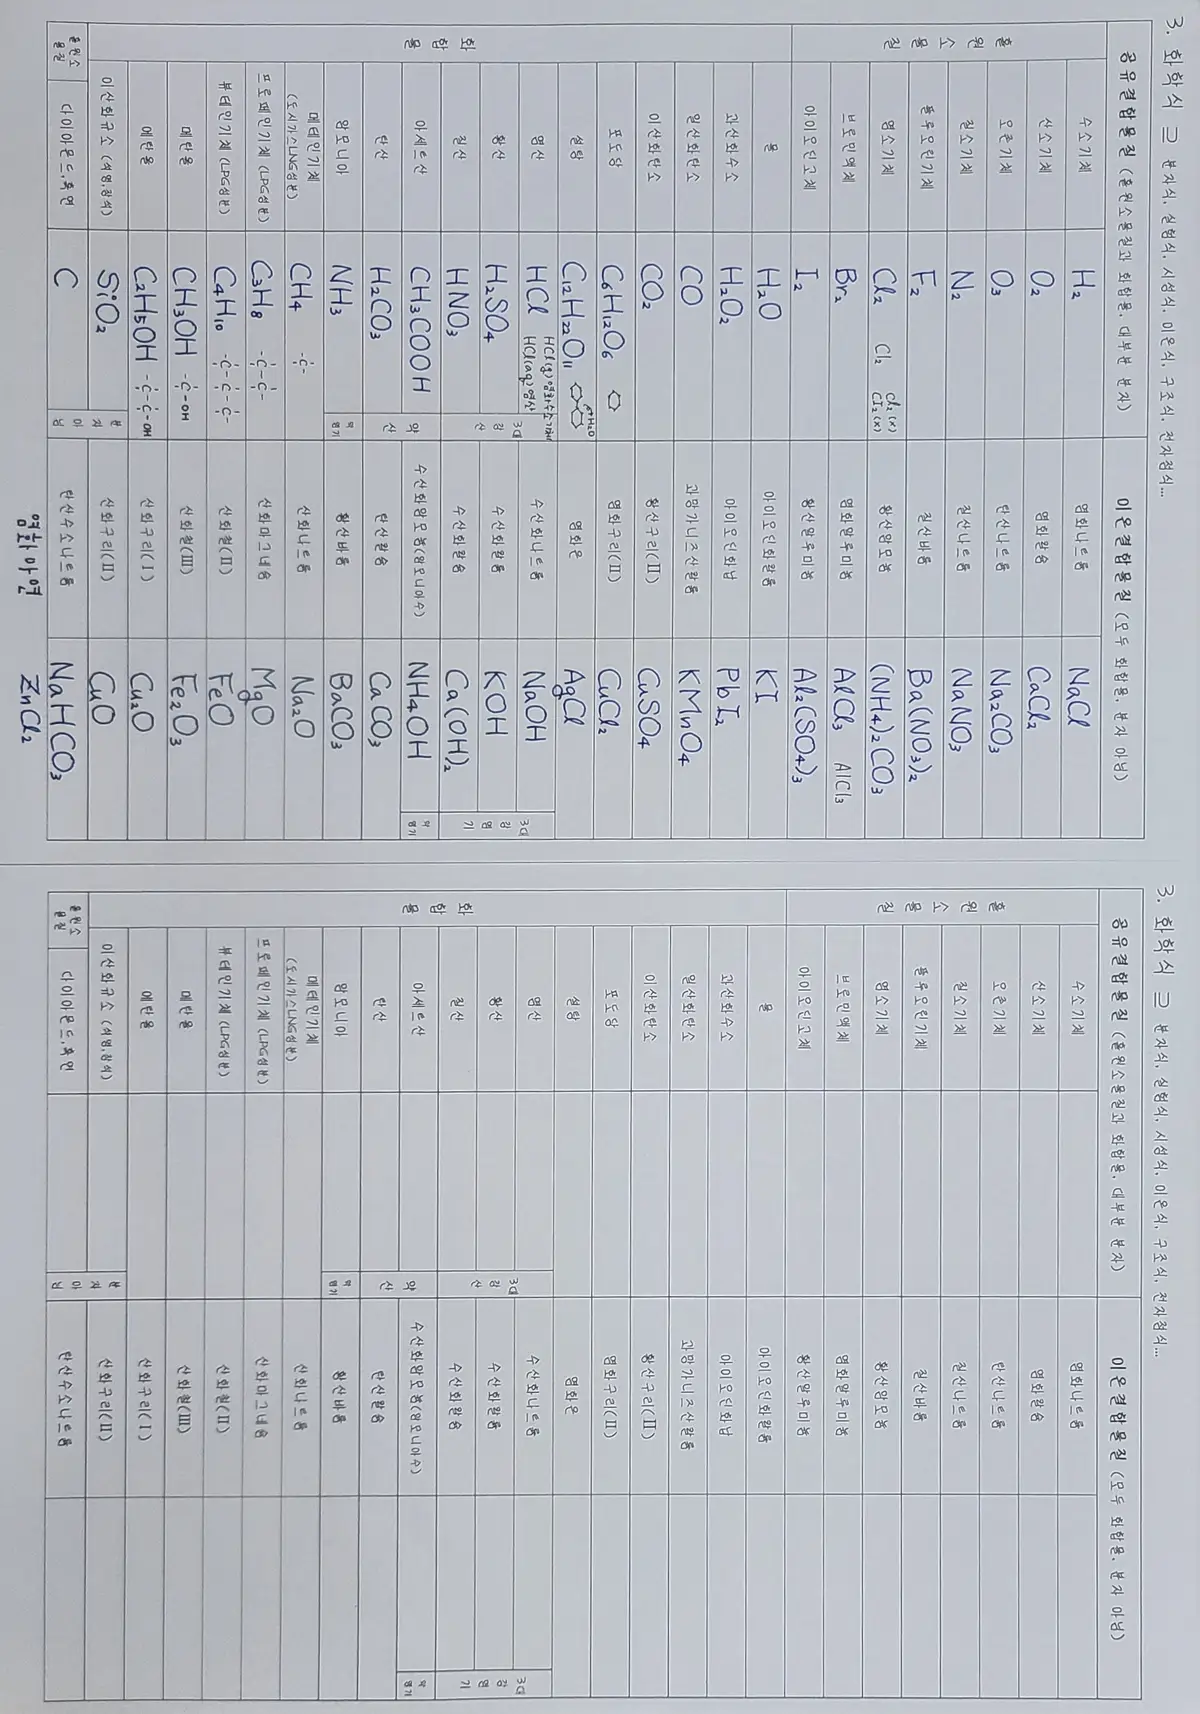 3. 화학식 ⊃ 분자식, 실험식, 시성식, 이온식, 구조식, 전자점식...
공유결합물질 (홑원소물질과 화합물. 대부분 분자) 이온결합물질 (모두 화합물. 분자 아님)
홑원소물질
수소기체 H₂ 염화나트륨 NaCl
산소기체 O₂ 염화칼슘 CaCl₂
오존기체 O₃ 탄산나트륨 Na₂CO₃
질소기체 N₂ 질산나트륨 NaNO₃
플루오린기체 F₂ 질산바륨 Ba(NO₃)₂
염소기체 Cl₂ Cl₂ cl₂(x) CI₂(x) 황산암모늄 (NH₄)₂CO₃
브로민액체 Br₂ 염화알루미늄 AlCl₃ AlCl₃
아이오딘고체 I₂ 황산알루미늄 Al₂(SO₄)₃
화합물
물 H₂O 아이오딘화칼륨 KI
과산화수소 H₂O₂ 아이오딘화납 PbI₂
일산화탄소 CO 과망가니즈산칼륨 KMnO₄
이산화탄소 CO₂ 황산구리(II) CuSO₄
포도당 C₆H₁₂O₆ 염화구리(II) CuCl₂
설탕 C₁₂H₂₂O₁₁ +H₂O 염화은 AgCl
염산 HCl HCl(g)염화수소기체 HCl(aq)염산 3대강산 수산화나트륨 NaOH 3대강염기
황산 H₂SO₄ 수산화칼륨 KOH
질산 HNO₃ 수산화칼슘 Ca(OH)₂
아세트산 CH₃COOH 약산 수산화암모늄(암모니아수) NH₄OH 약염기
탄산 H₂CO₃ 탄산칼슘 CaCO₃
암모니아 NH₃ 약염기 황산바륨 BaCO₃
메테인기체 (도시가스LNG성분) CH₄ -C- 산화나트륨 Na₂O
프로페인기체 (LPG성분) C₃H₈ -C-C-C- 산화마그네슘 MgO
뷰테인기체 (LPG성분) C₄H₁₀ -C-C-C-C- 산화철(II) FeO
메탄올 CH₃OH -C-OH 산화철(III) Fe₂O₃
에탄올 C₂H₅OH -C-C-OH 산화구리(I) Cu₂O
이산화규소 (석영,참석) SiO₂ 분자아님 산화구리(II) CuO
홑원소물질 다이아몬드,흑연 C 탄산수소나트륨 NaHCO₃
염화아연 ZnCl₂
3. 화학식 ⊃ 분자식, 실험식, 시성식, 이온식, 구조식, 전자점식...
공유결합물질 (홑원소물질과 화합물. 대부분 분자) 이온결합물질 (모두 화합물. 분자 아님)
홑원소물질
수소기체 염화나트륨
산소기체 염화칼슘
오존기체 탄산나트륨
질소기체 질산나트륨
플루오린기체 질산바륨
염소기체 황산암모늄
브로민액체 염화알루미늄
아이오딘고체 황산알루미늄
화합물
물 아이오딘화칼륨
과산화수소 아이오딘화납
일산화탄소 과망가니즈산칼륨
이산화탄소 황산구리(II)
포도당 염화구리(II)
설탕 염화은
염산 3대강산 수산화나트륨 3대강염기
황산 수산화칼륨
질산 수산화칼슘
아세트산 약산 수산화암모늄(암모니아수) 약염기
탄산 탄산칼슘
암모니아 약염기 황산바륨
메테인기체 (도시가스LNG성분) 산화나트륨
프로페인기체 (LPG성분) 산화마그네슘
뷰테인기체 (LPG성분) 산화철(II)
메탄올 산화철(III)
에탄올 산화구리(I)
이산화규소 (석영,참석) 분자아님 산화구리(II)
홑원소물질 다이아몬드,흑연 탄산수소나트륨